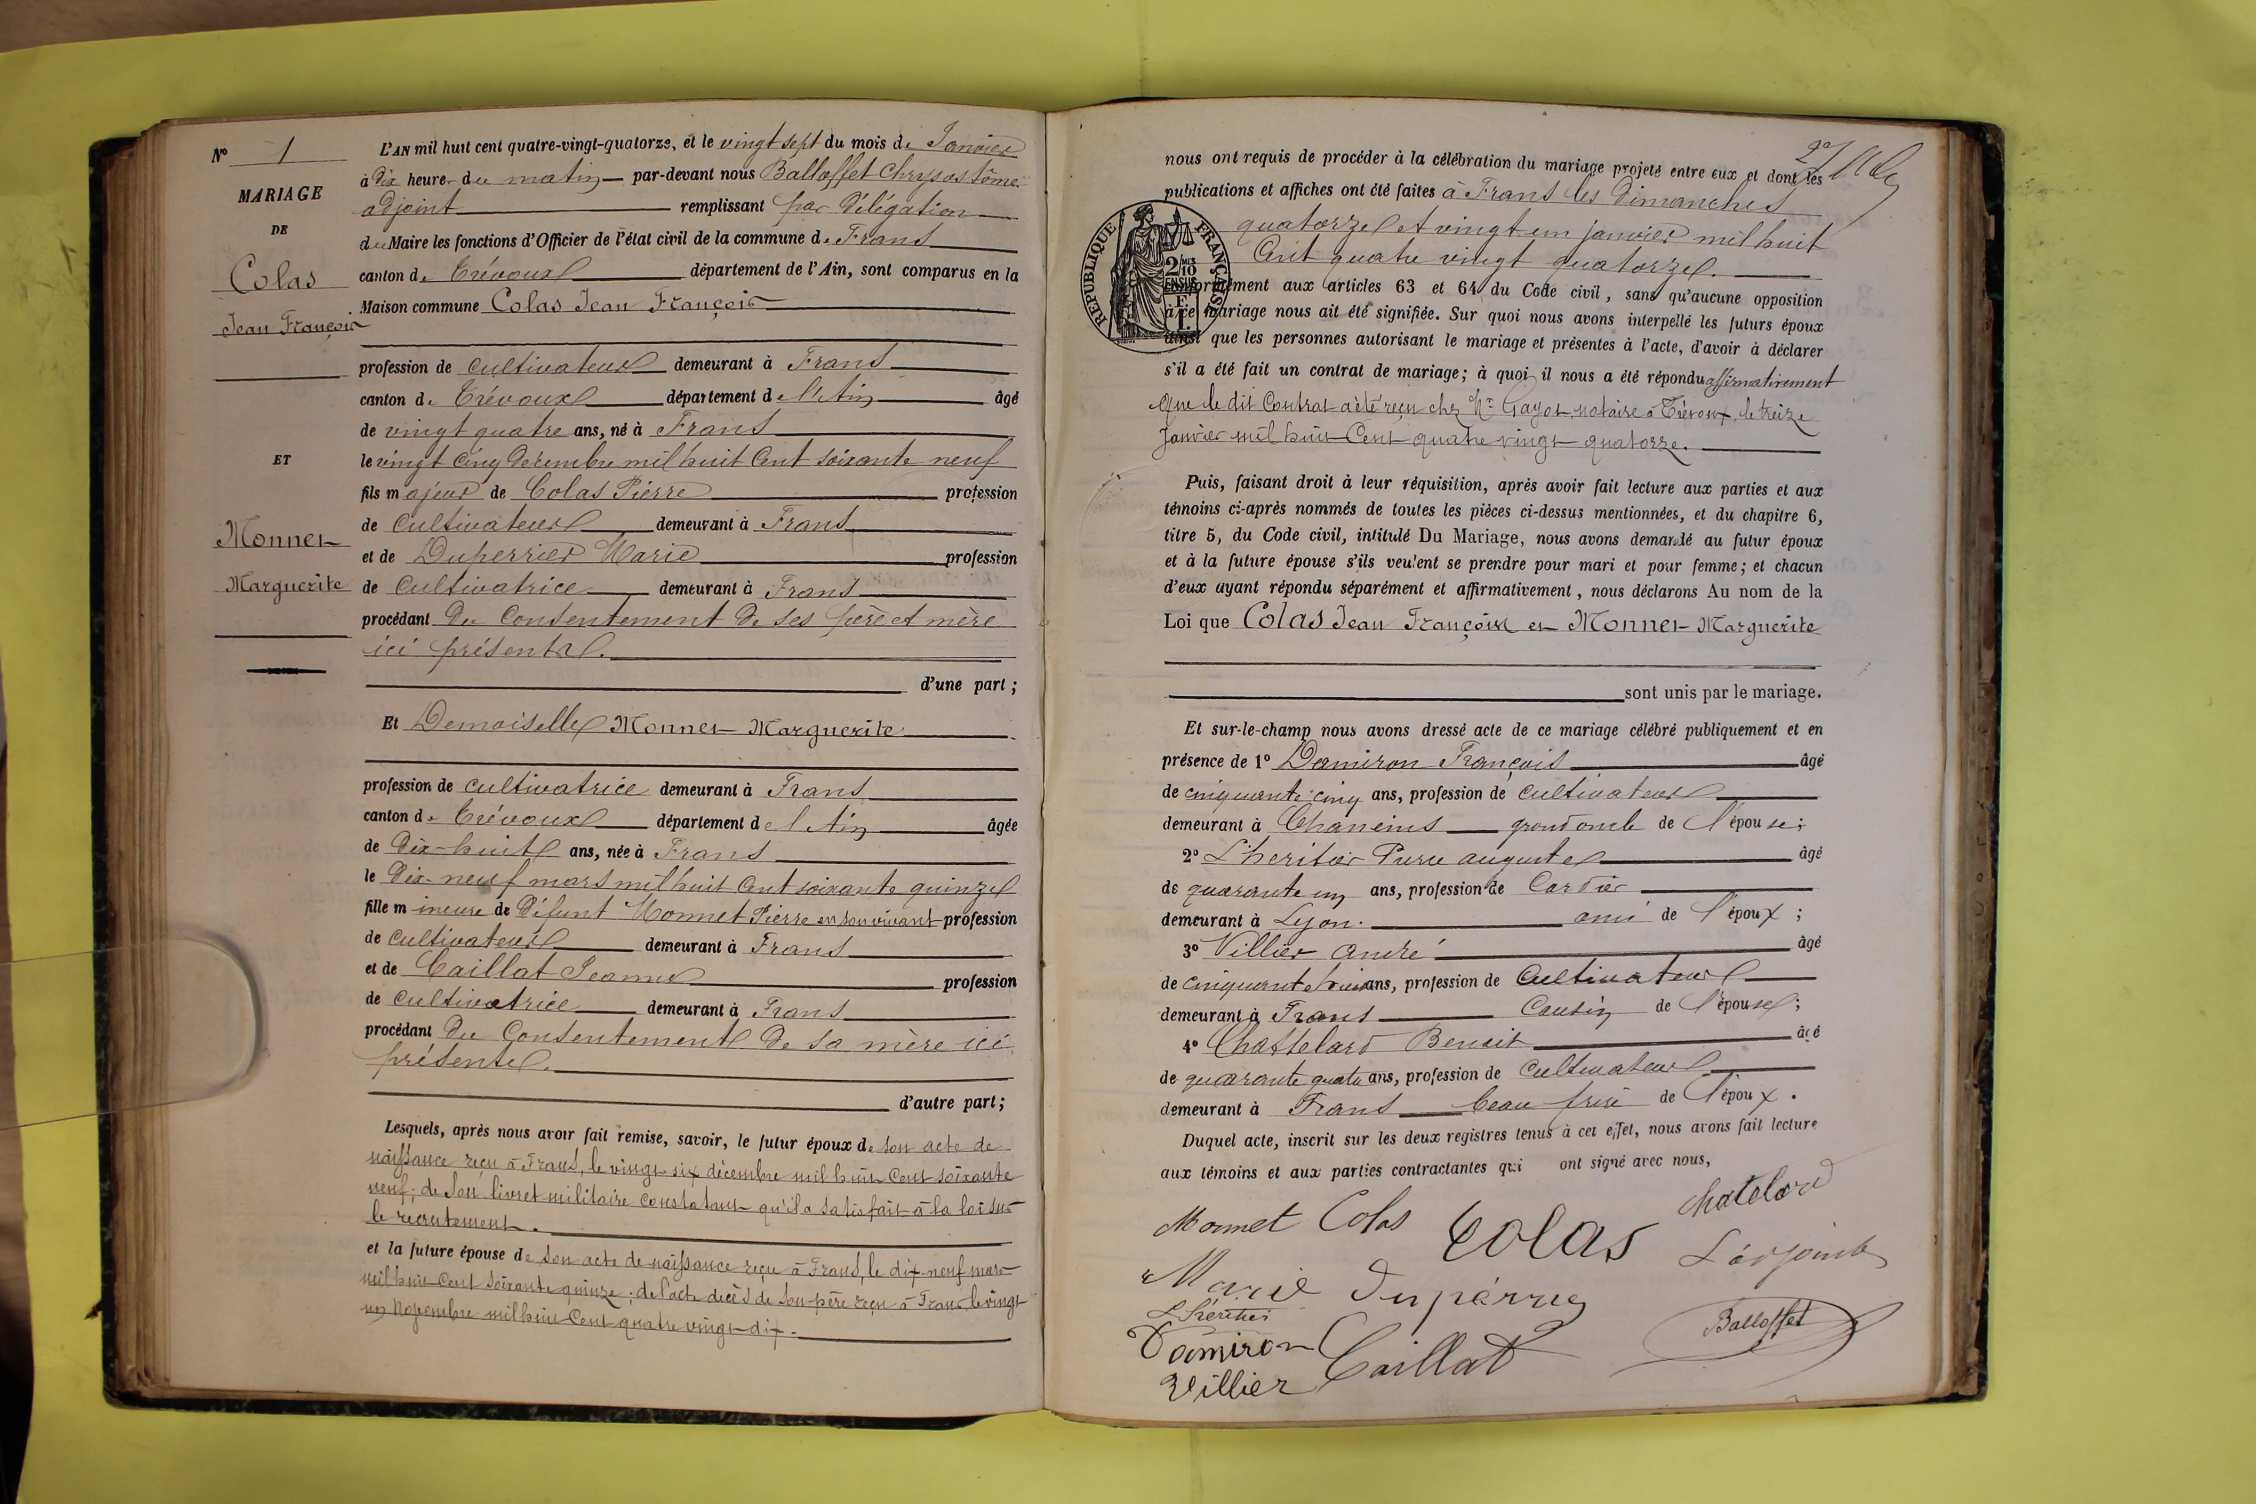 N° 1
MARIAGE
DE
Colas
Jean François
ET
Monnet
Marguerite
L'AN mil huit cent quatre-vingt-quatorze, et le vingt sept du mois de Janvier
à Dix heures du matin par-devant nous Balloffet Chrysostôme
adjoint remplissant par Délégation
du Maire les fonctions d'Officier de l'état civil de la commune de Frans
canton de Trévoux département de l'Ain, sont comparus en la
Maison commune Colas Jean François
profession de cultivateur demeurant à Frans
canton de Trévoux département de l'Ain âgé
de vingt quatre ans, né à Frans
le vingt cinq Décembre mil huit Cent soixante neuf
fils majeur de Colas Pierre profession
de cultivateur demeurant à Frans
et de Duperrier Marie profession
de cultivatrice demeurant à Frans
procédant Du Consentement De ses père et mère
ici présents.
d'une part ;
Et Demoiselle Monnet Marguerite
profession de cultivatrice demeurant à Frans
canton de Trévoux département de l'Ain âgée
de Dix-huit ans, née à Frans
le Dix-neuf mars mil huit Cent soixante quinze
fille mineure de Défunt Monnet Pierre en son vivant profession
de cultivateur demeurant à Frans
et de Caillat Jeanne profession
de cultivatrice demeurant à Frans
procédant Du Consentement De sa mère ici
présente.
d'autre part ;
Lesquels, après nous avoir fait remise, savoir, le futur époux de son acte de
naissance reçu à Frans, le vingt six décembre mil huit cent soixante
neuf ; de son livret militaire constatant qu'il a satisfait à la loi sur
le recrutement.
et la future épouse de son acte de naissance reçu à Frans, le dix-neuf mars
mil huit cent soixante quinze ; de l'acte décès de son père reçu à Frans le vingt
un Novembre mil huit Cent quatre vingt-dix.
nous ont requis de procéder à la célébration du mariage projeté entre eux et dont les
publications et affiches ont été faites à Frans les Dimanches
quatorze et vingt un janvier mil huit
Cent quatre vingt quatorze.
RÉPUBLIQUE FRANÇAISE
2/10
EN SUS
conformément aux articles 63 et 64 du Code civil, sans qu'aucune opposition
à ce mariage nous ait été signifiée. Sur quoi nous avons interpellé les futurs époux
ainsi que les personnes autorisant le mariage et présentes à l'acte, d'avoir à déclarer
s'il a été fait un contrat de mariage ; à quoi il nous a été répondu affirmativement
Que le dit Contrat a été reçu chez Mr Gayot notaire à Trévoux le treize
Janvier mil huit Cent quatre vingt quatorze.
Puis, faisant droit à leur réquisition, après avoir fait lecture aux parties et aux
témoins ci-après nommés de toutes les pièces ci-dessus mentionnées, et du chapitre 6,
titre 5, du Code civil, intitulé Du Mariage, nous avons demandé au futur époux
et à la future épouse s'ils veulent se prendre pour mari et pour femme ; et chacun
d'eux ayant répondu séparément et affirmativement, nous déclarons Au nom de la
Loi que Colas Jean François et Monnet Marguerite
sont unis par le mariage.
Et sur-le-champ nous avons dressé acte de ce mariage célébré publiquement et en
présence de 1° Damiron François âgé
de cinquante cinq ans, profession de cultivateur
demeurant à Chaneins grand oncle de l'épouse ;
2° L'heritier Pierre auguste âgé
de quarante un ans, profession de Cordier
demeurant à Lyon. ami de l'époux ;
3° Villier André âgé
de cinquante huit ans, profession de Cultivateur
demeurant à Frans Cousin de l'épouse ;
4° Chattelard Benoit âgé
de quarante quatre ans, profession de cultivateur
demeurant à Frans beau frère de l'époux.
Duquel acte, inscrit sur les deux registres tenus à cet effet, nous avons fait lecture
aux témoins et aux parties contractantes qui ont signé avec nous,
Monnet Colas Colas Chatelard
Marie Dupérrier L'adjoint
L'héritier
Damiron Caillat Balloffet
Villier